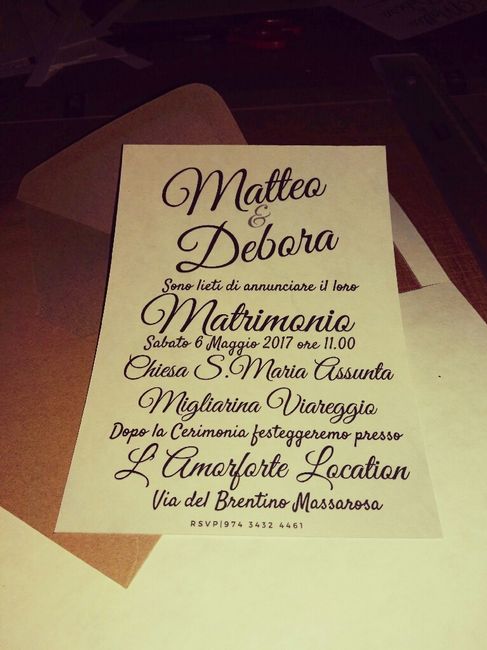 Matteo
&
Debora
Sono lieti di annunciare il loro
Matrimonio
Sabato 6 Maggio 2017 ore 11.00
Chiesa S.Maria Assunta
Migliarina Viareggio
Dopo la Cerimonia festeggeremo presso
L Amorforte Location
Via del Brentino Massarosa
RSVP|974 3432 4461